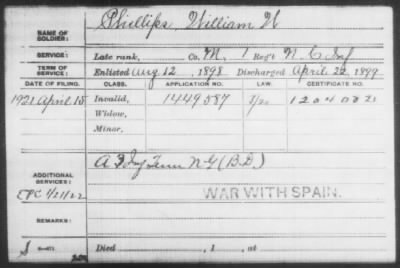 NAME OF SOLDIER: Phillips William H
SERVICE: Late rank, Co. M, 1 Reg't N. C. Inf
TERM OF SERVICE: Enlisted Aug 12, 1898 Discharged April 22, 1899
DATE OF FILING. CLASS. APPLICATION NO. LAW. CERTIFICATE NO.
1921 April 15 Invalid, 1449087 1204002
Widow,
Minor,
ADDITIONAL SERVICES: A 3 Inf Tenn N G (B.D.)
WAR WITH SPAIN.
REMARKS:
Died , 1 , at